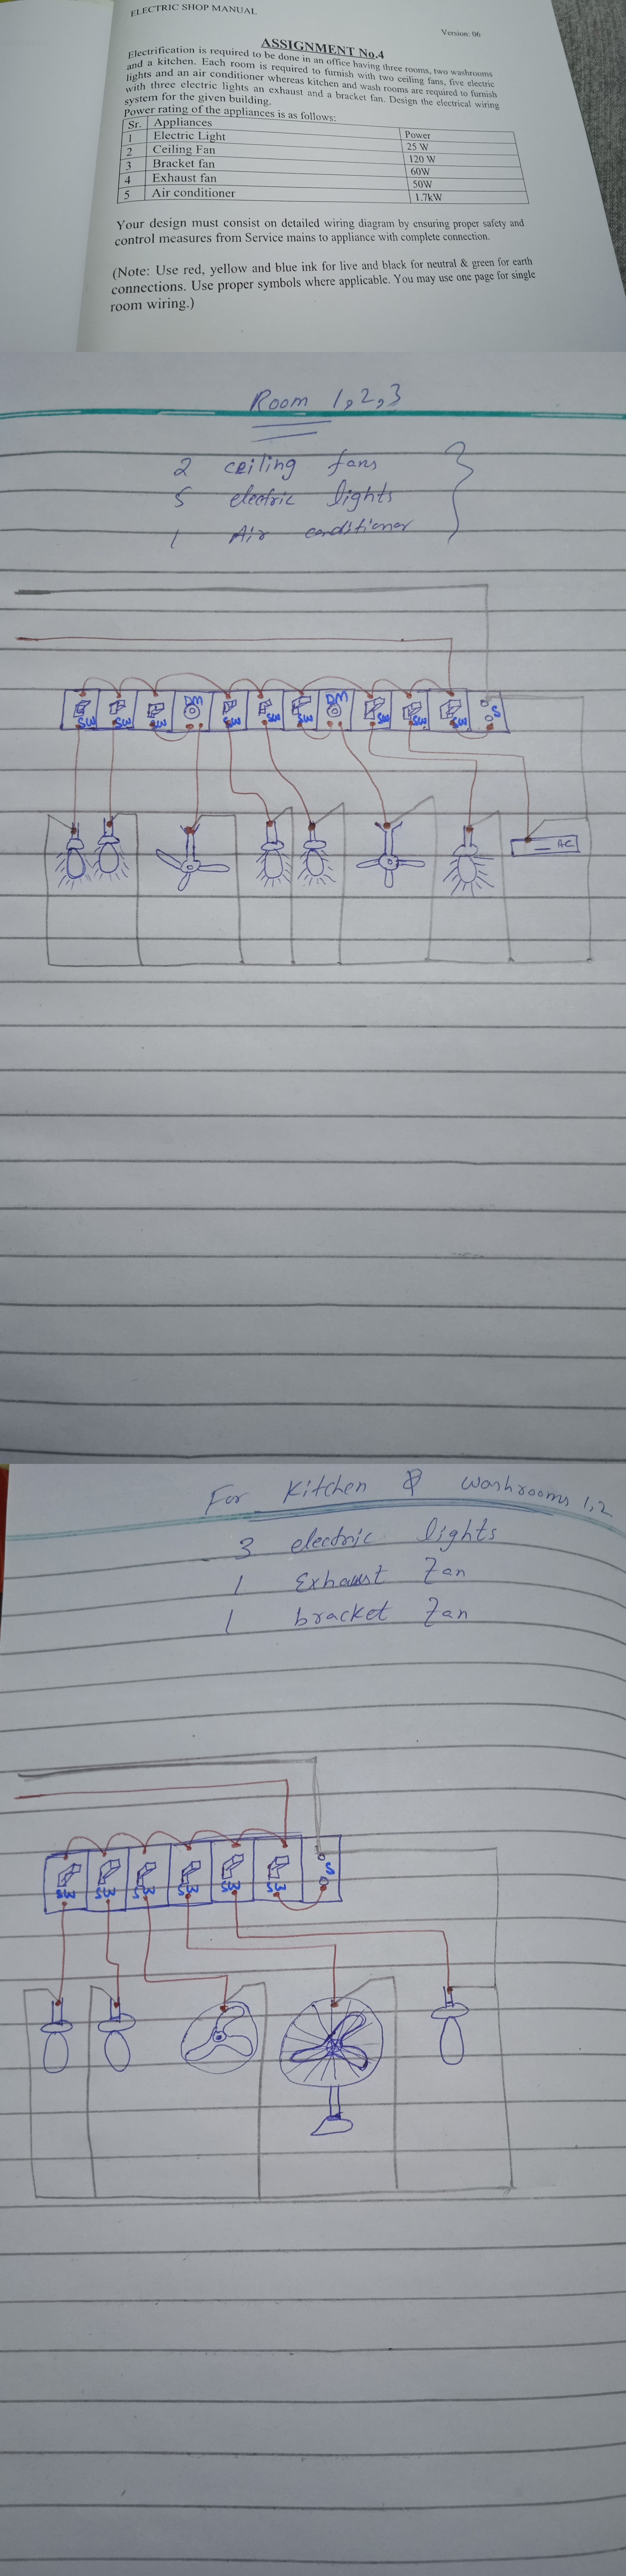 ELECTRIC SHOP MANUAL
Version: 06
ASSIGNMENT No.4
Electrification is required to be done in an office having three rooms, two washrooms
and a kitchen. Each room is required to furnish with two ceiling fans, five electric
lights and an air conditioner whereas kitchen and wash rooms are required to furnish
with three electric lights an exhaust and a bracket fan. Design the electrical wiring
system for the given building.
Power rating of the appliances is as follows:
Sr. Appliances Power
1 Electric Light 25 W
2 Ceiling Fan 120 W
3 Bracket fan 60W
4 Exhaust fan 50W
5 Air conditioner 1.7kW
Your design must consist on detailed wiring diagram by ensuring proper safety and
control measures from Service mains to appliance with complete connection.
(Note: Use red, yellow and blue ink for live and black for neutral & green for earth
connections. Use proper symbols where applicable. You may use one page for single
room wiring.)
Room 1,2,3
2 ceiling fans
5 electric lights
1 Air conditioner
SW SW SW DM SW SW SW DM SW SW SW S
AC
For Kitchen & washrooms 1,2
3 electric lights
1 Exhaust Fan
1 bracket Fan
SW SW SW SW SW SW S